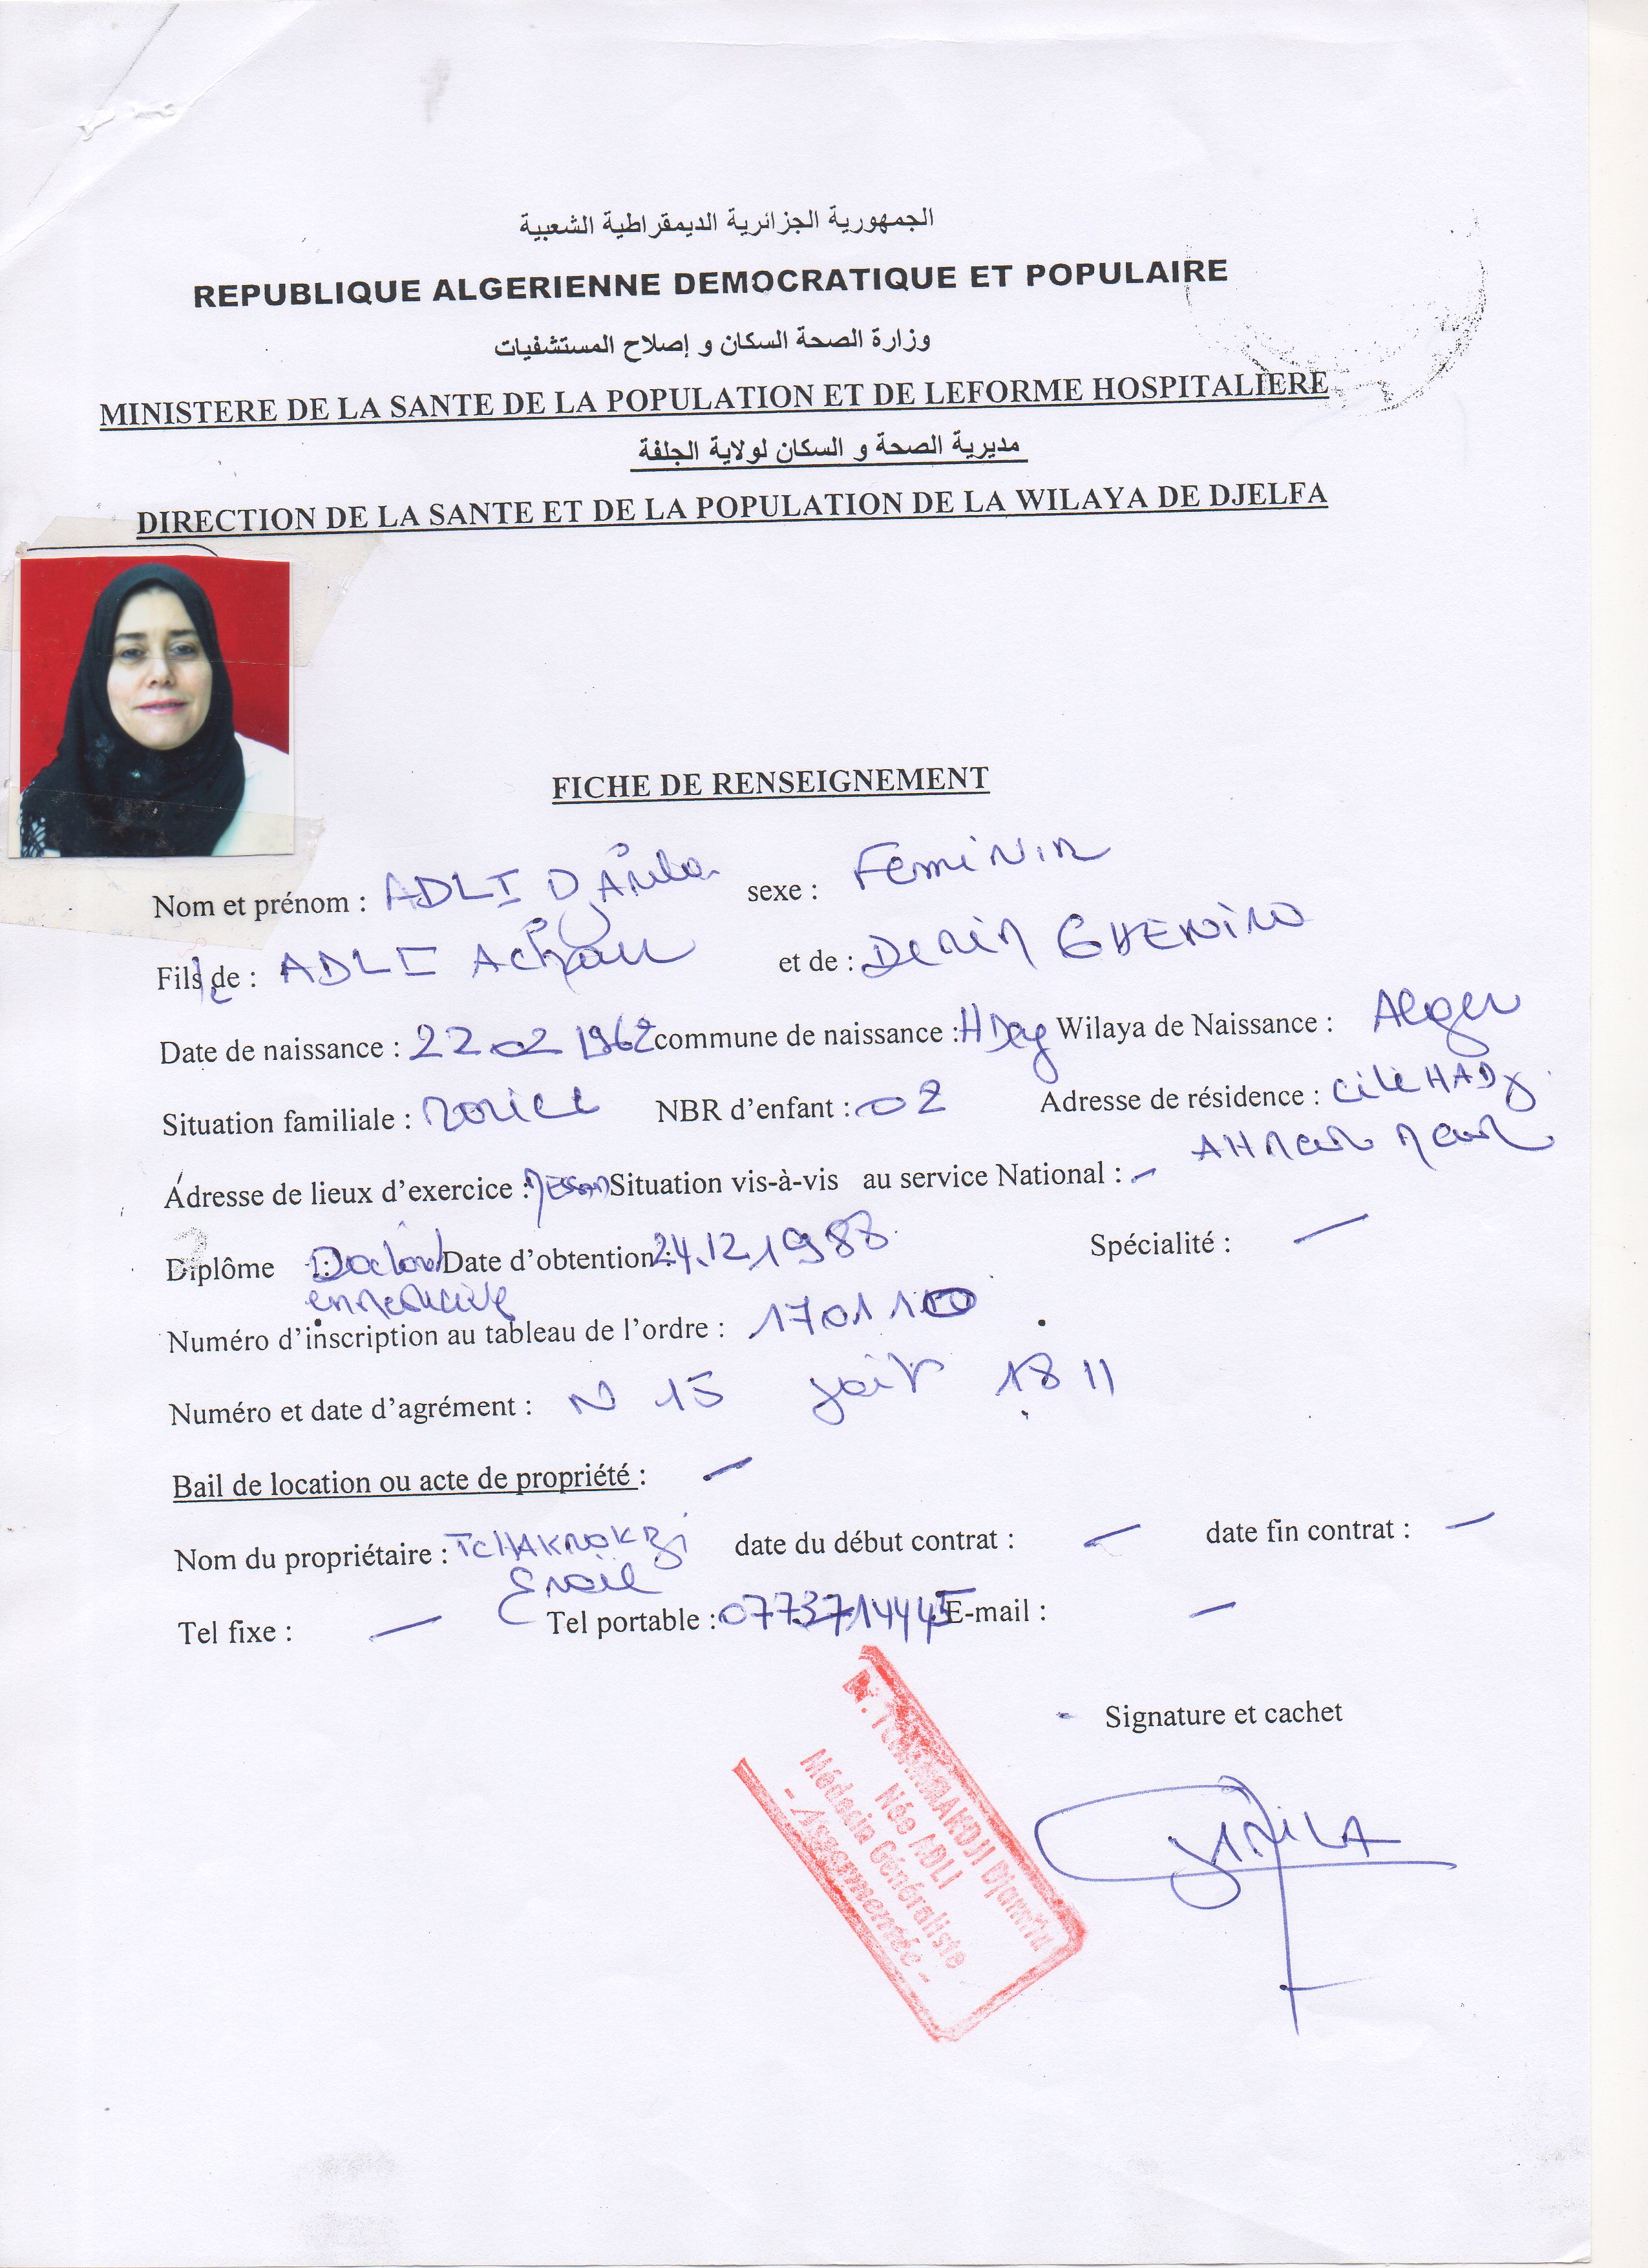 الجمهورية الجزائرية الديمقراطية الشعبية
REPUBLIQUE ALGERIENNE DEMOCRATIQUE ET POPULAIRE
وزارة الصحة السكان و إصلاح المستشفيات
MINISTERE DE LA SANTE DE LA POPULATION ET DE LEFORME HOSPITALIERE
مديرية الصحة و السكان لولاية الجلفة
DIRECTION DE LA SANTE ET DE LA POPULATION DE LA WILAYA DE DJELFA
FICHE DE RENSEIGNEMENT
Nom et prénom : ADLI sexe : Feminin
Fils de : ADLI et de :
Date de naissance : 22.02 1962 commune de naissance : H Dey Wilaya de Naissance : Alger
Situation familiale : NBR d'enfant : 02 Adresse de résidence : cité
Adresse de lieux d'exercice : Situation vis-à-vis au service National : -
Diplôme : Doctorat Date d'obtention : 24.12.1988 Spécialité : -
en
Numéro d'inscription au tableau de l'ordre :
Numéro et date d'agrément : N 15
Bail de location ou acte de propriété : -
Nom du propriétaire : date du début contrat : - date fin contrat : -
Tel fixe : - Tel portable : 0773714445 E-mail : -
Signature et cachet
Djamila
Née ADLI
Médecin Généraliste
- Assermentée -